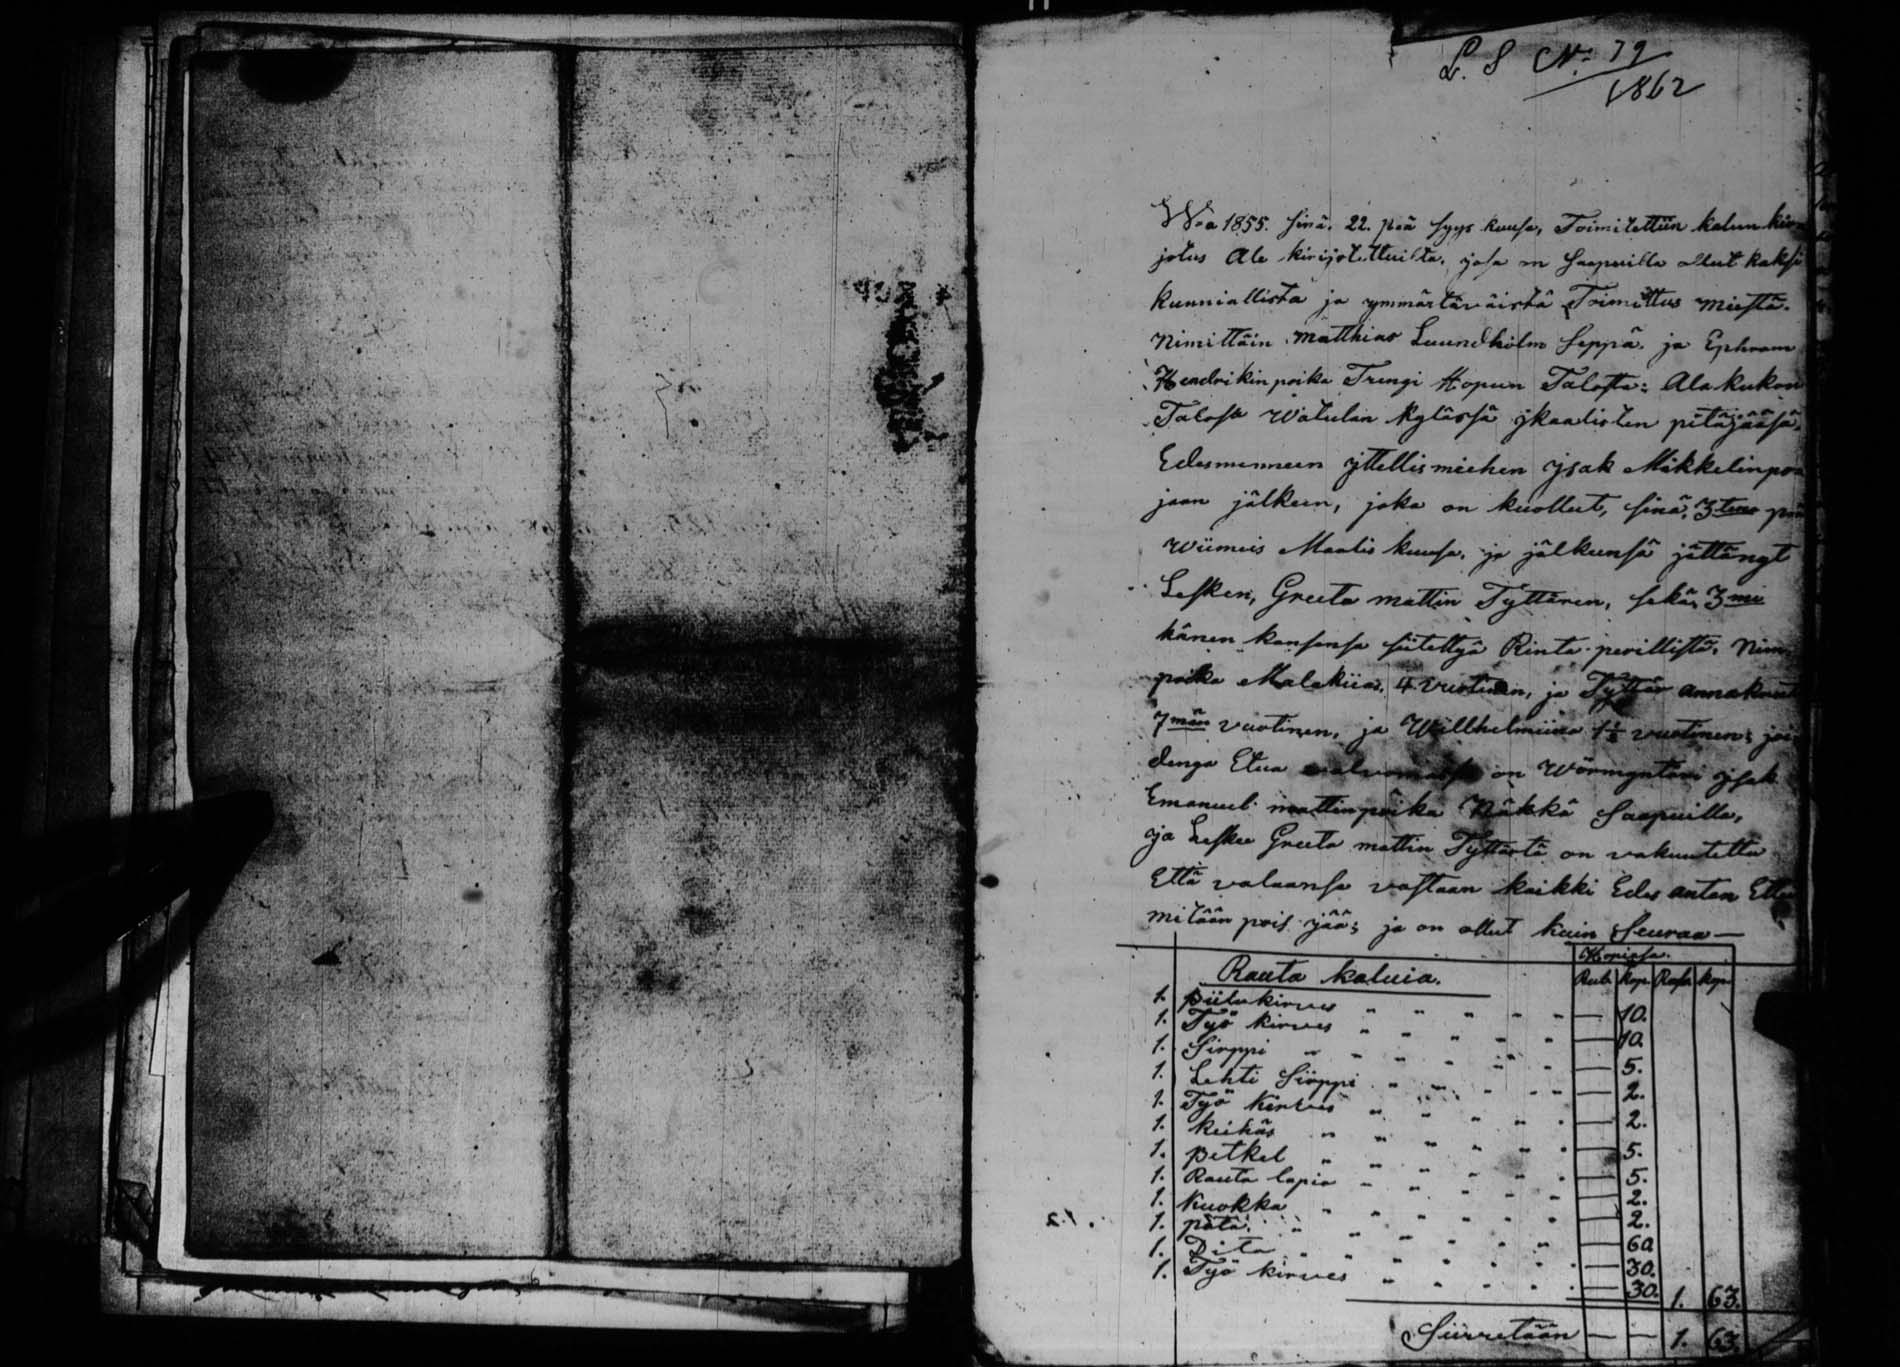 L. S No 79
1862
Wna 1855. sinä. 22. pnä syys kuusa, Toimitettiin kalun kir
jotus Ale kirijotettuilta, josa on saapuilla ollut kaksi
kunniallista ja ymmärtäväistä Toimittus miestä.
Nimittäin Matthias Luundholm Seppä. ja Ephram
Hendrikin poika Trengi Hopun Talosta: Ala kukon
Talosa Watulan kylässä jkaalisten pitäjääsä,
Edesmenneen yttellismiehen jsak Mikkelinpoi
jaan jälkeen, joka on kuollut, sinä, 3ten pnä
Wiimeis Maalis kuusa, ja jälkeensä jättänyt
Lesken, Greeta mattin Tyttären, sekä, 3me
hänen kansansa siitettyä Rinta perillistä, Nim.
poika Malakiias, 4 vuotinen, ja Tyttär anna
7män vuotinen, ja Willhelmiina 1½ vuotinen; joi
denga Etua valvomassa on Wörmyntäri jsak
Emanuel mattinpoika Näkkä Saapuilla,
ja Leskee Greeta mattin Tyttärtä on vakuutettu
Että valaansa vastaan kaikki Edes antan Ettei
mitään pois jää; ja on ollut kuin Seuraa —
Hopiasa.
Rauta kaluia. Rub. kop. Rubl. kop.
1. piilukirves " " " " — 10.
1. Työ kirves " " " " — 10.
1. Sirppi " " " " — 5.
1. Lehti Sirppi " " " " — 2.
1. Työ kirves " " " " — 2.
1. keihäs " " " " — 5.
1. petkel " " " " — 5.
1. Rauta lapio " " " " — 2.
1. kuokka " " " " — 2.
1. pata " " " " — 60
1. Dita " " " " — 30.
1. Työ kirves " " " " — 30. 1. 63.
Siirretään — — 1. 63.